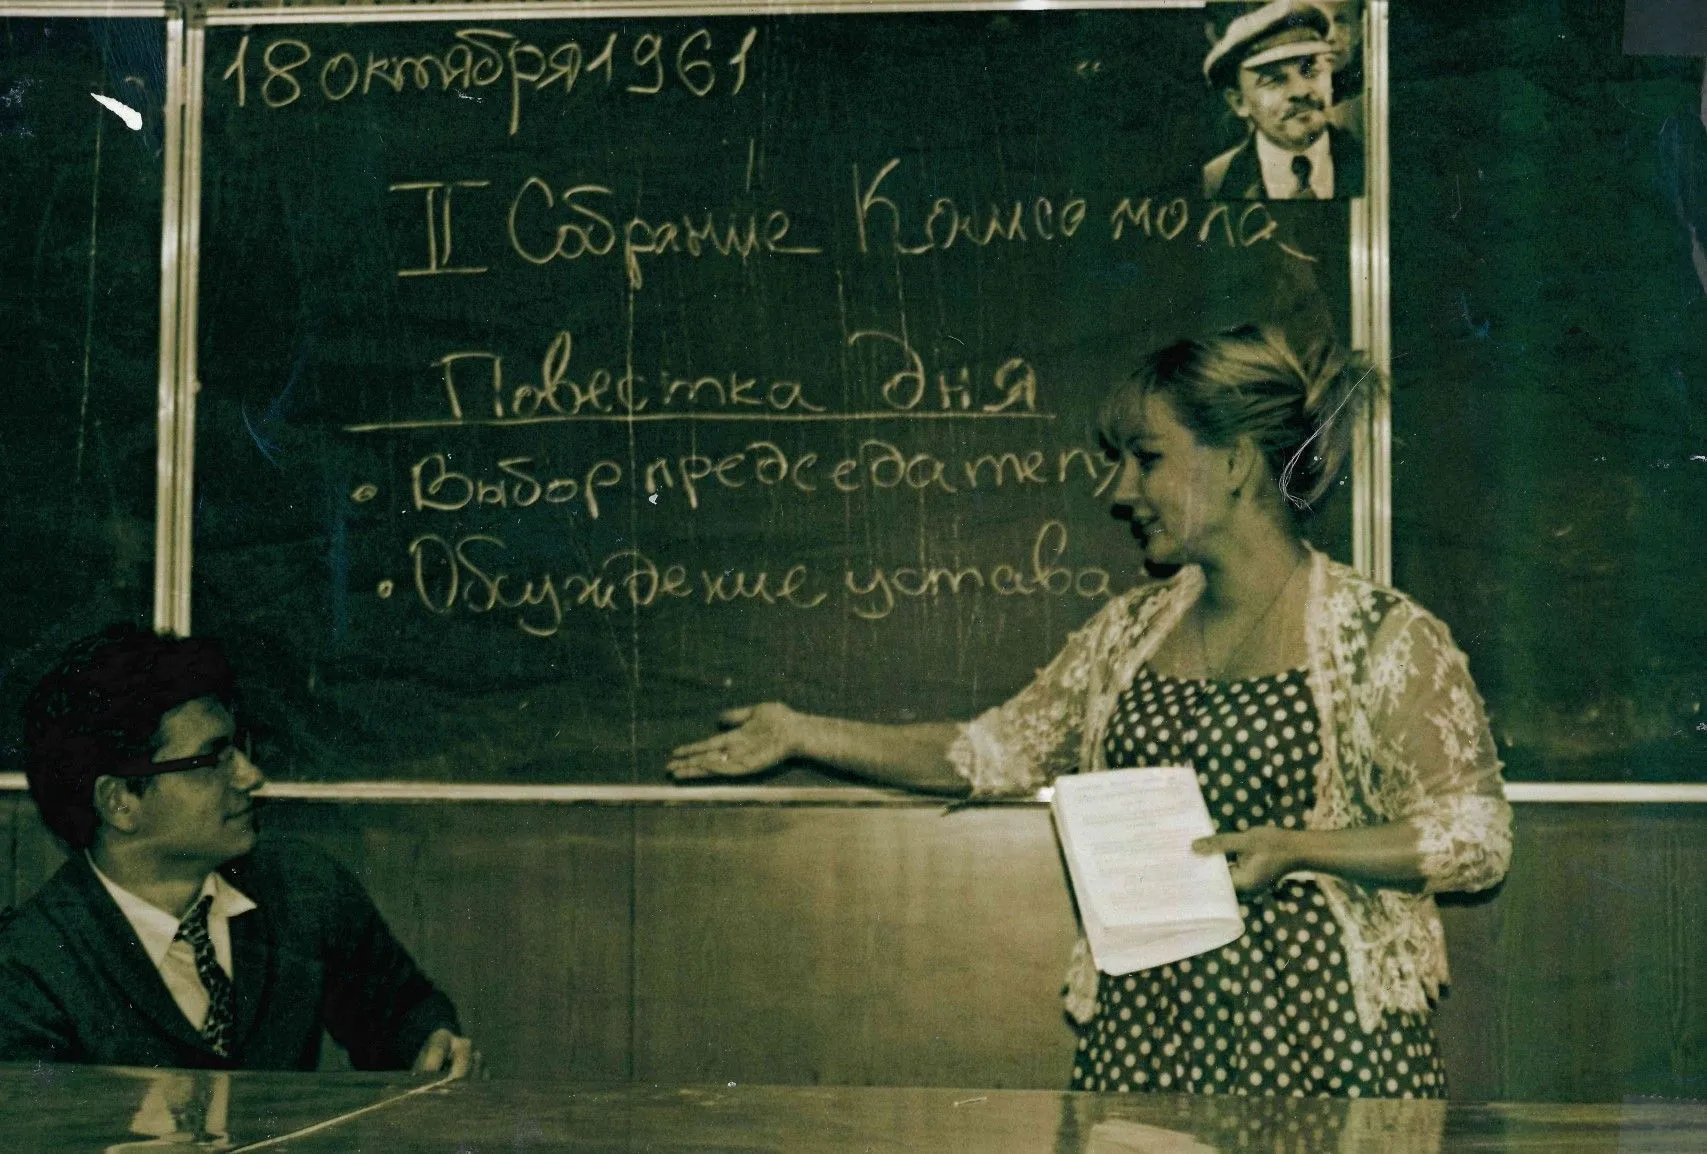 18 октября 1961
II Собрание Комсомола
Повестка дня
• Выбор председателя
• Обсуждение устава